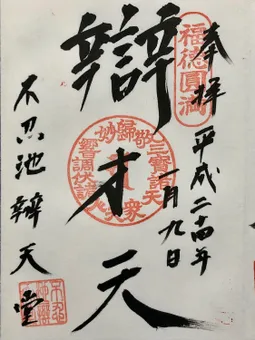 奉拝
福徳圓満
平成二十四年
一月九日
辯才天
不忍池辯天堂